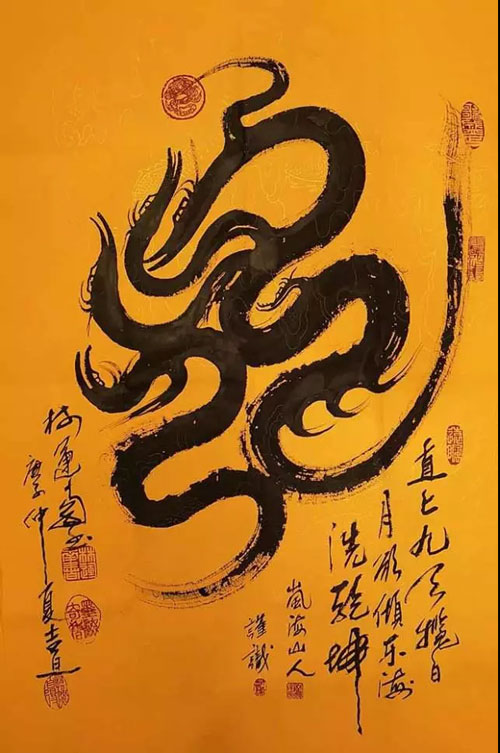 直上九天揽日
月欲倾东海
洗乾坤
嵐海山人
謹識
庚子仲夏吉旦